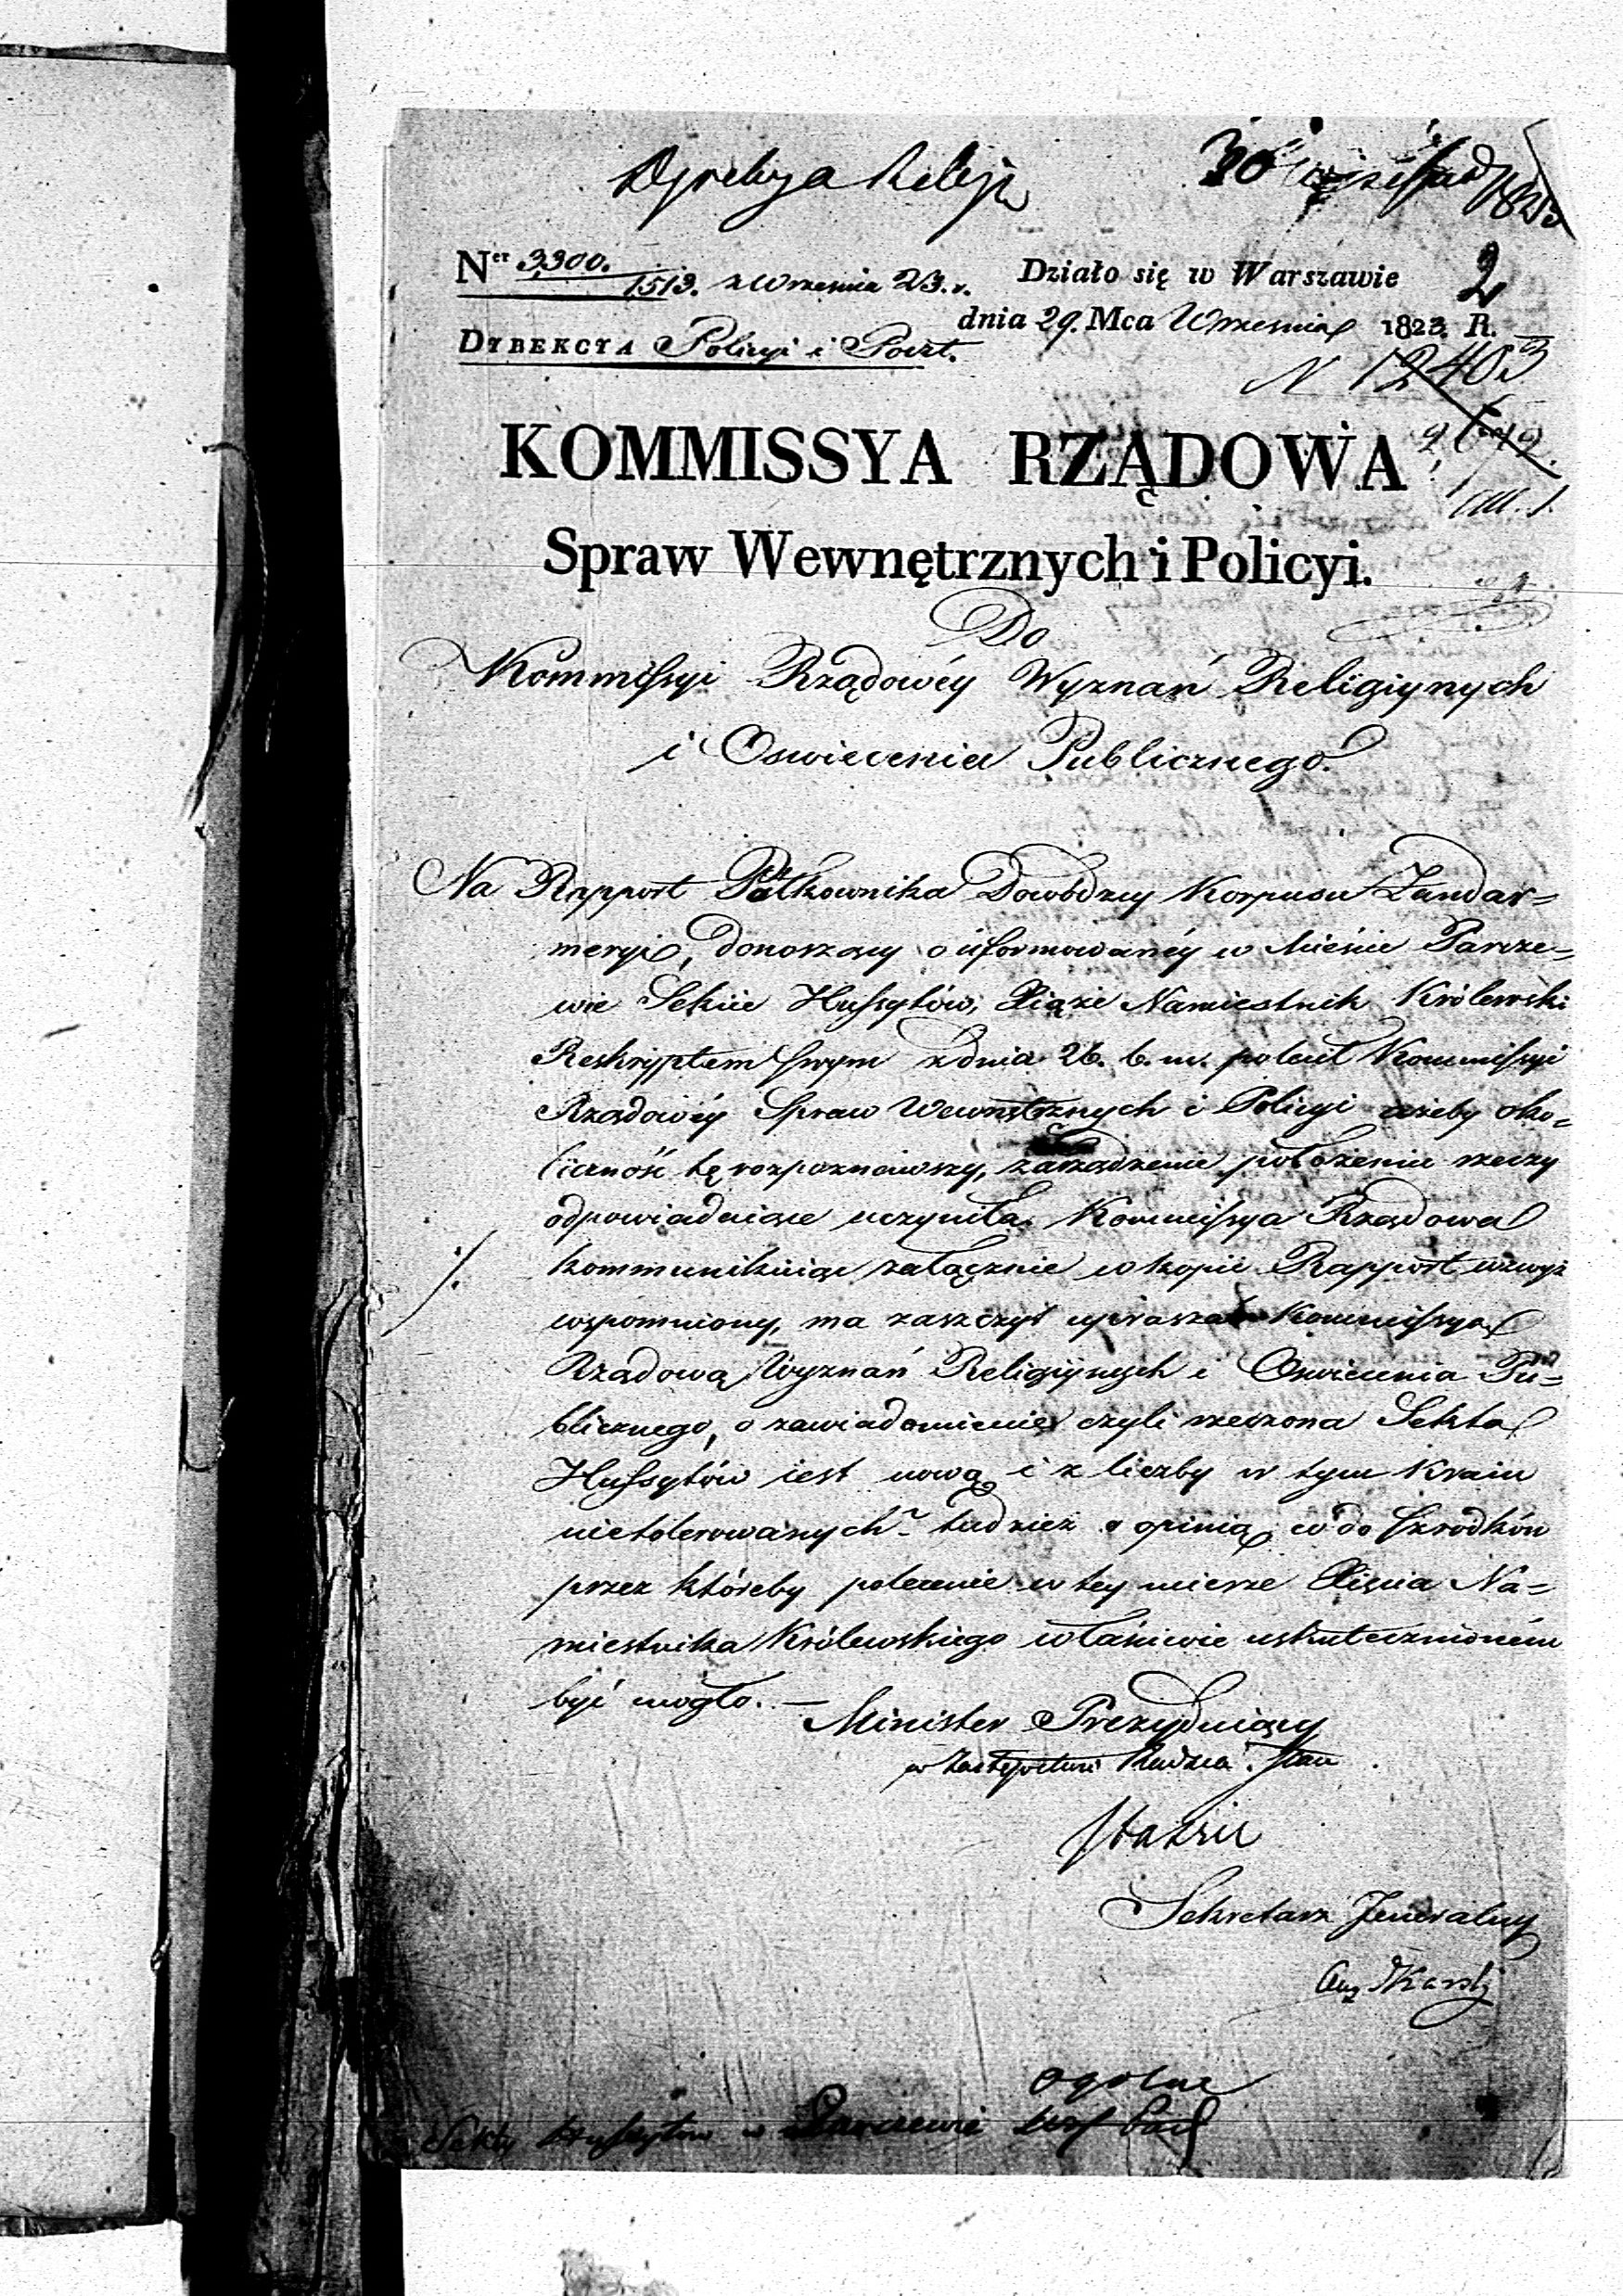 Dyrekcya Religij
30 1823
Ner 3300. / 1513. z Września 23. r. Działo się w Warszawie 2
dnia 29. Mca Września 1823. R.
DYREKCYA Policyi i Poczt.
N 12403
KOMMISSYA RZĄDOWA
Spraw Wewnętrznych i Policyi.
Do
Kommissyi Rządowéy Wyznań Religiynych
i Oswiecenia Publicznego.
Na Rapport Półkownika Dowódzcy Korpusu Żandar=
meryi, donoszący o uformowanéy w Mieście Parcze=
wie Sekcie Hussytów, Xiąże Namiestnik Królewski
Reskryptem swym z dnia 26. b. m. polecił Kommissyi
Rządowéy Spraw Wewnętrznych i Policyi ażeby oko=
liczność tę rozpoznawszy, zarządzenie położeniu rzeczy
odpowiadaiące uczyniła. Kommissya Rządowa
kommunikuiąc załącznie w kopii Rapport wzwyż
wspomniony, ma zaszczyt upraszać Kommissyą
Rządową Wyznań Religiynych i Oswiecenia Pu=
blicznego, o zawiadomienie czyli rzeczona Sekta
Hussytów iest nową i z liczby w tym Kraiu
nietolerowanych? tudzież o opinią co do szrodków
przez któreby polecenie w tey mierze Xięcia Na=
miestnika Królewskiego właściwie uskutecznioném
być mogło. —
Minister Prezyduiący
w Zastępstwie Radzca Stanu
Staszic
Sekretarz Jeneralny
Aug Karski
ogólne
Sekty Hussytów w Parczewie